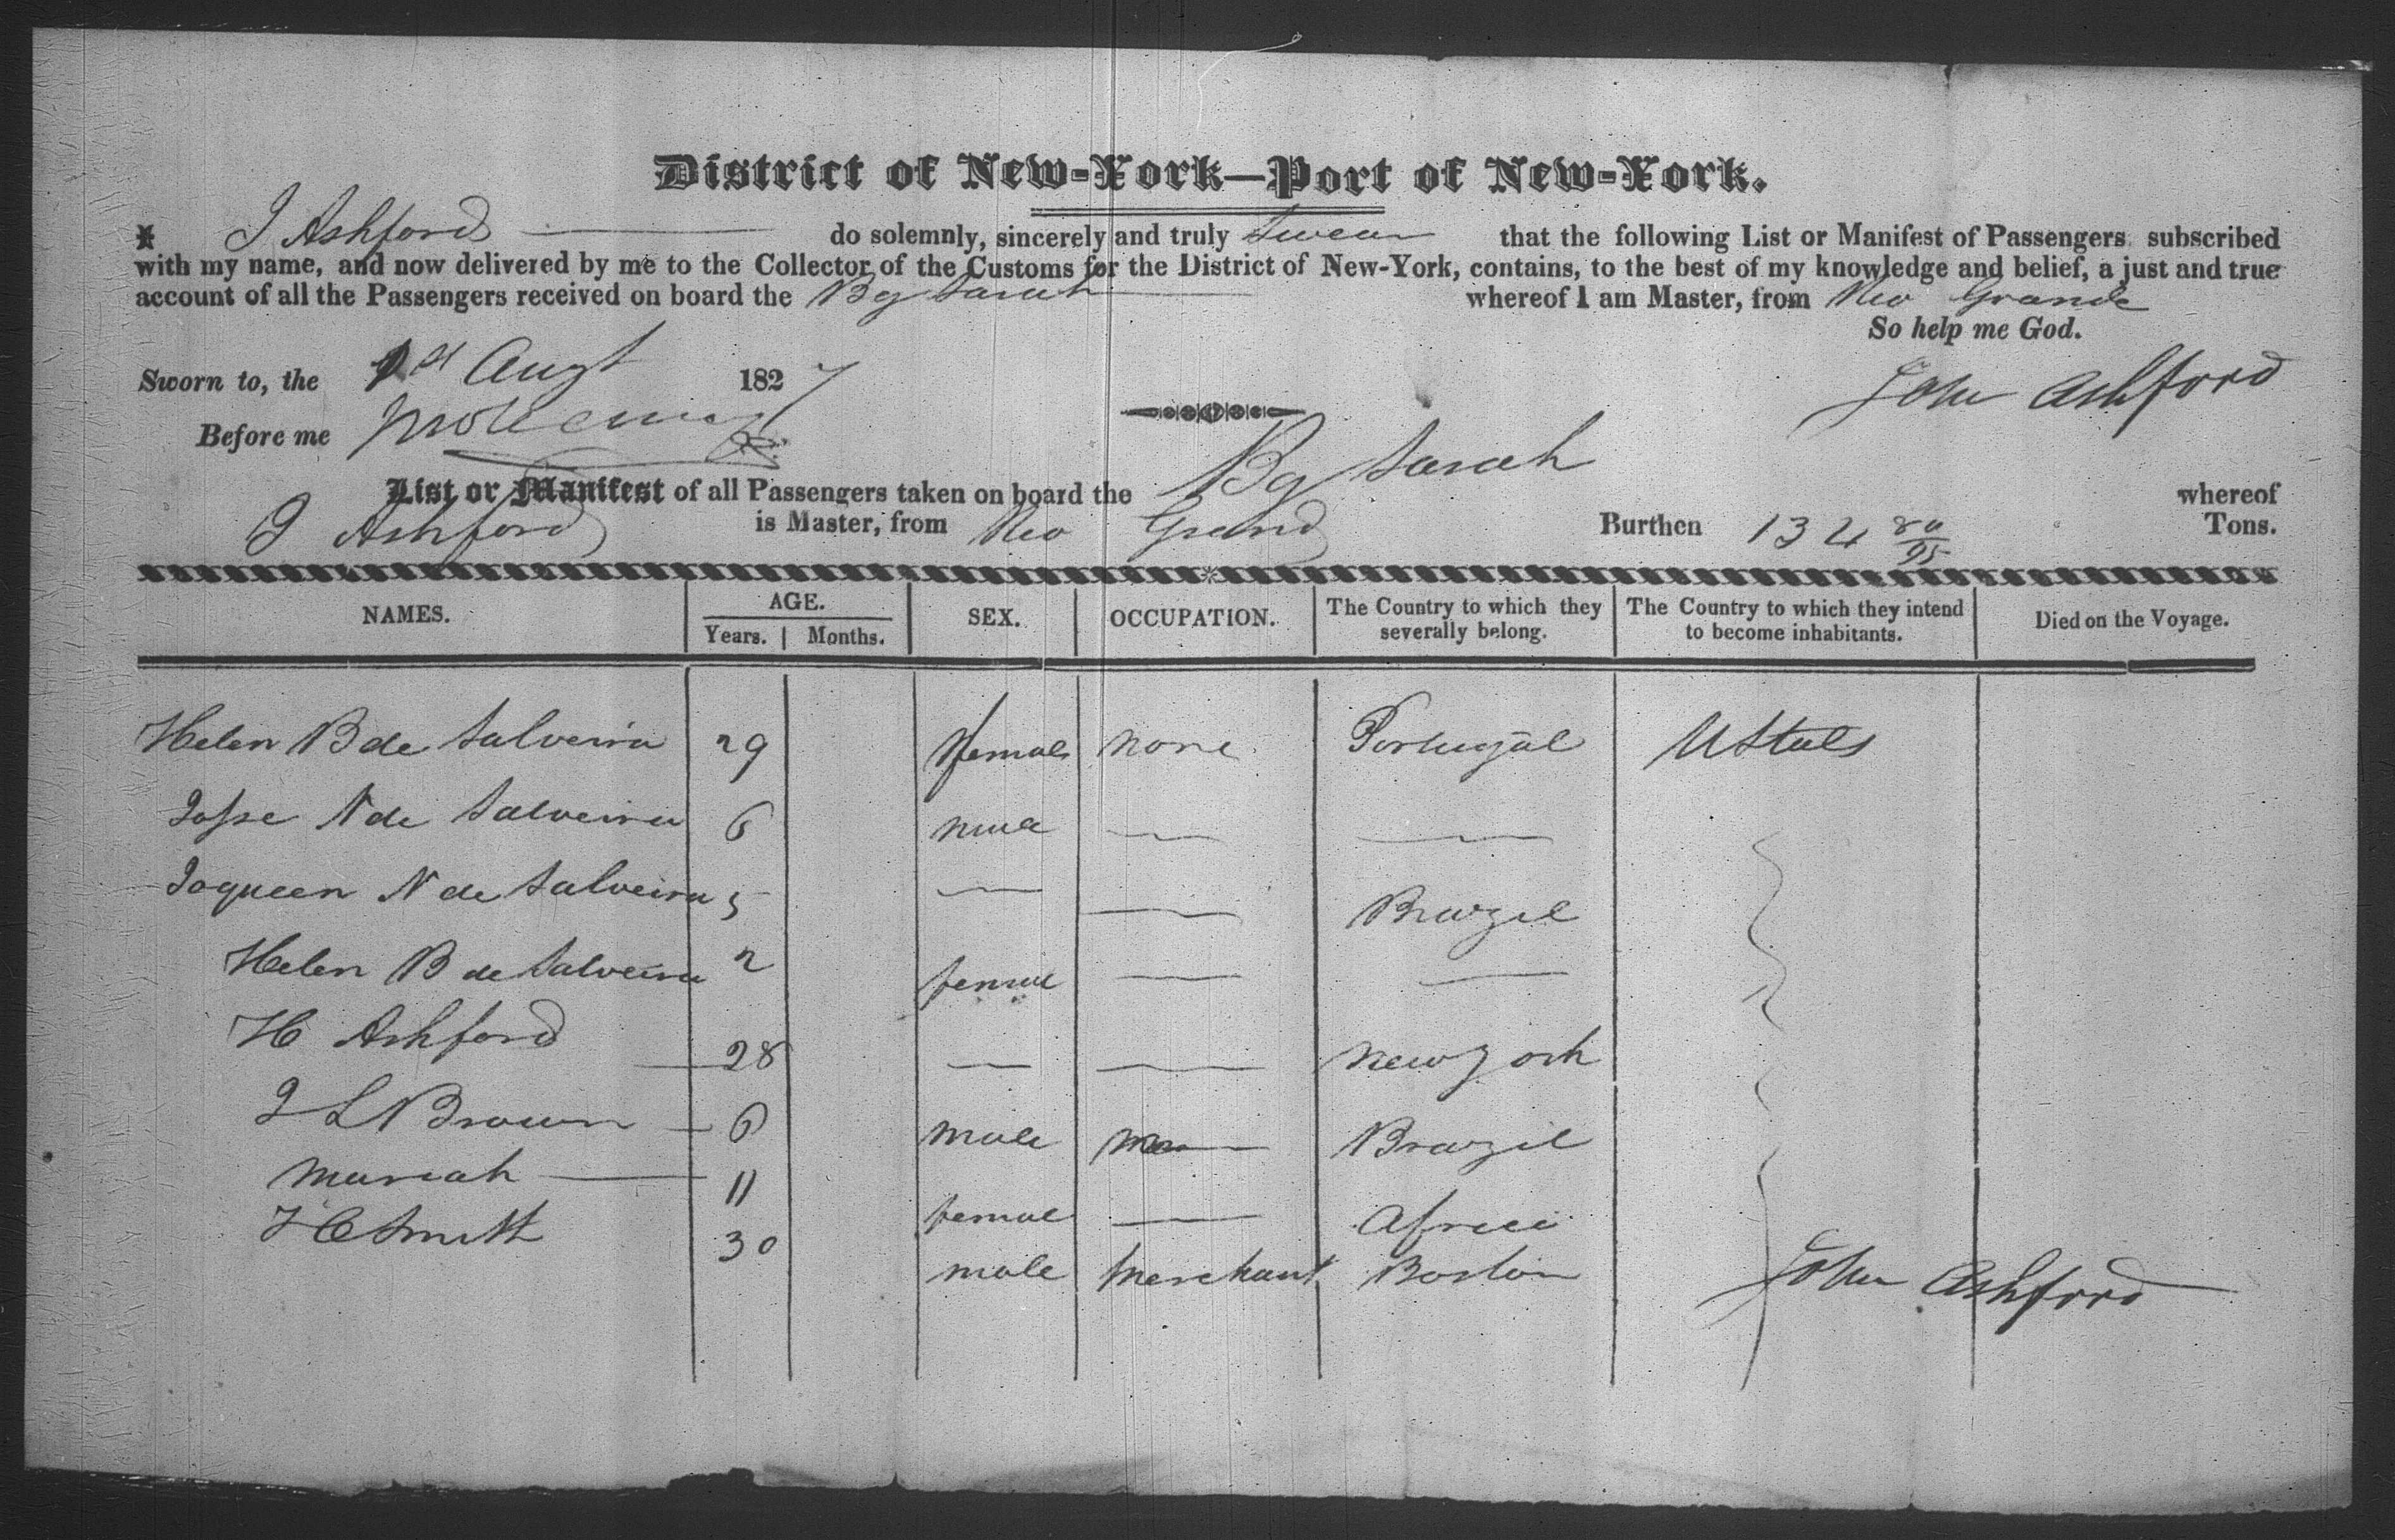 District of New-York—Port of New-York.
I, J Ashford do solemnly, sincerely and truly swear that the following List or Manifest of Passengers subscribed
with my name, and now delivered by me to the Collector of the Customs for the District of New-York, contains, to the best of my knowledge and belief, a just and true
account of all the Passengers received on board the Bg Sarah whereof I am Master, from Rio Grande
So help me God.
Sworn to, the 1st Augt 1827
John Ashford
Before me
List or Manifest of all Passengers taken on board the Bg Sarah whereof
J Ashford is Master, from Rio Grand Burthen 134 80/95 Tons.
NAMES. AGE. SEX. OCCUPATION. The Country to which they severally belong. The Country to which they intend to become inhabitants. Died on the Voyage.
Years. Months.
Helen B de Salveira 29 female none Portugal U States
Josse N de Salveira 6 male
Joqueen N de Salveira 5 Brazil
Helen B de Salveira 2 female
H Ashford 28 New York
J L Brown 6 male Brazil
Mariah 11 female Africa
H Smith 30 male Merchant Boston
John Ashford